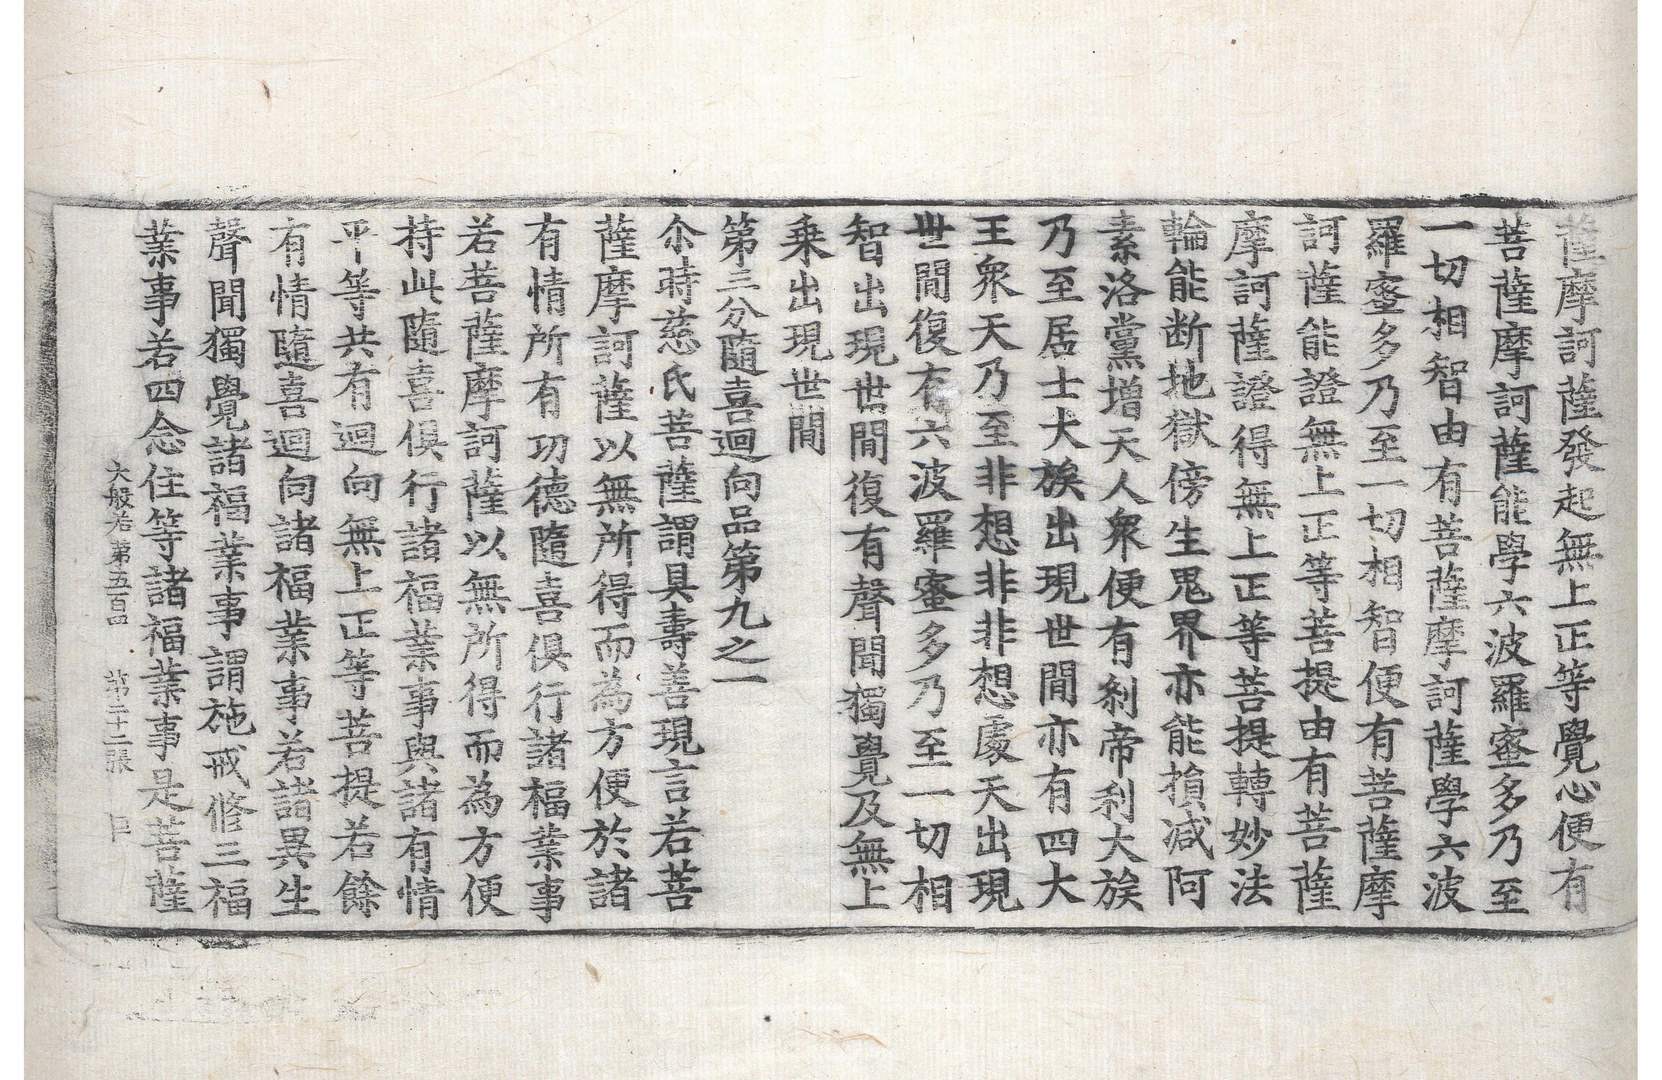 薩摩訶薩發起無上正等覺心便有
菩薩摩訶薩能學六波羅蜜多乃至
一切相智由有菩薩摩訶薩學六波
羅蜜多乃至一切相智便有菩薩摩
訶薩能證無上正等菩提由有菩薩
摩訶薩證得無上正等菩提轉妙法
輪能断地獄傍生鬼界亦能損减阿
素洛黨增天人衆便有刹帝利大族
乃至居士大族出現世間亦有四大
王衆天乃至非想非非想處天出現
世間復有六波羅蜜多乃至一切相
智出現世間復有聲聞獨覺及無上
乗出現世間
第三分隨喜迴向品第九之一
尒時慈氏菩薩謂具壽善現言若菩
薩摩訶薩以無所得而為方便於諸
有情所有功德隨喜俱行諸福業事
若菩薩摩訶薩以無所得而為方便
持此隨喜俱行諸福業事與諸有情
平等共有迴向無上正等菩提若餘
有情隨喜迴向諸福業事若諸異生
聲聞獨覺諸福業事謂施戒修三福
業事若四念住等諸福業事是菩薩
大般若第五百四 第二十二張 巨